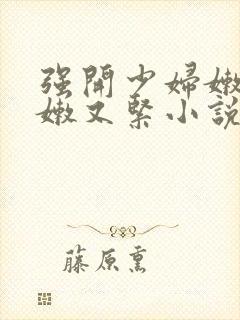 强開少婦嫩
嫩又緊小說
藤原熏